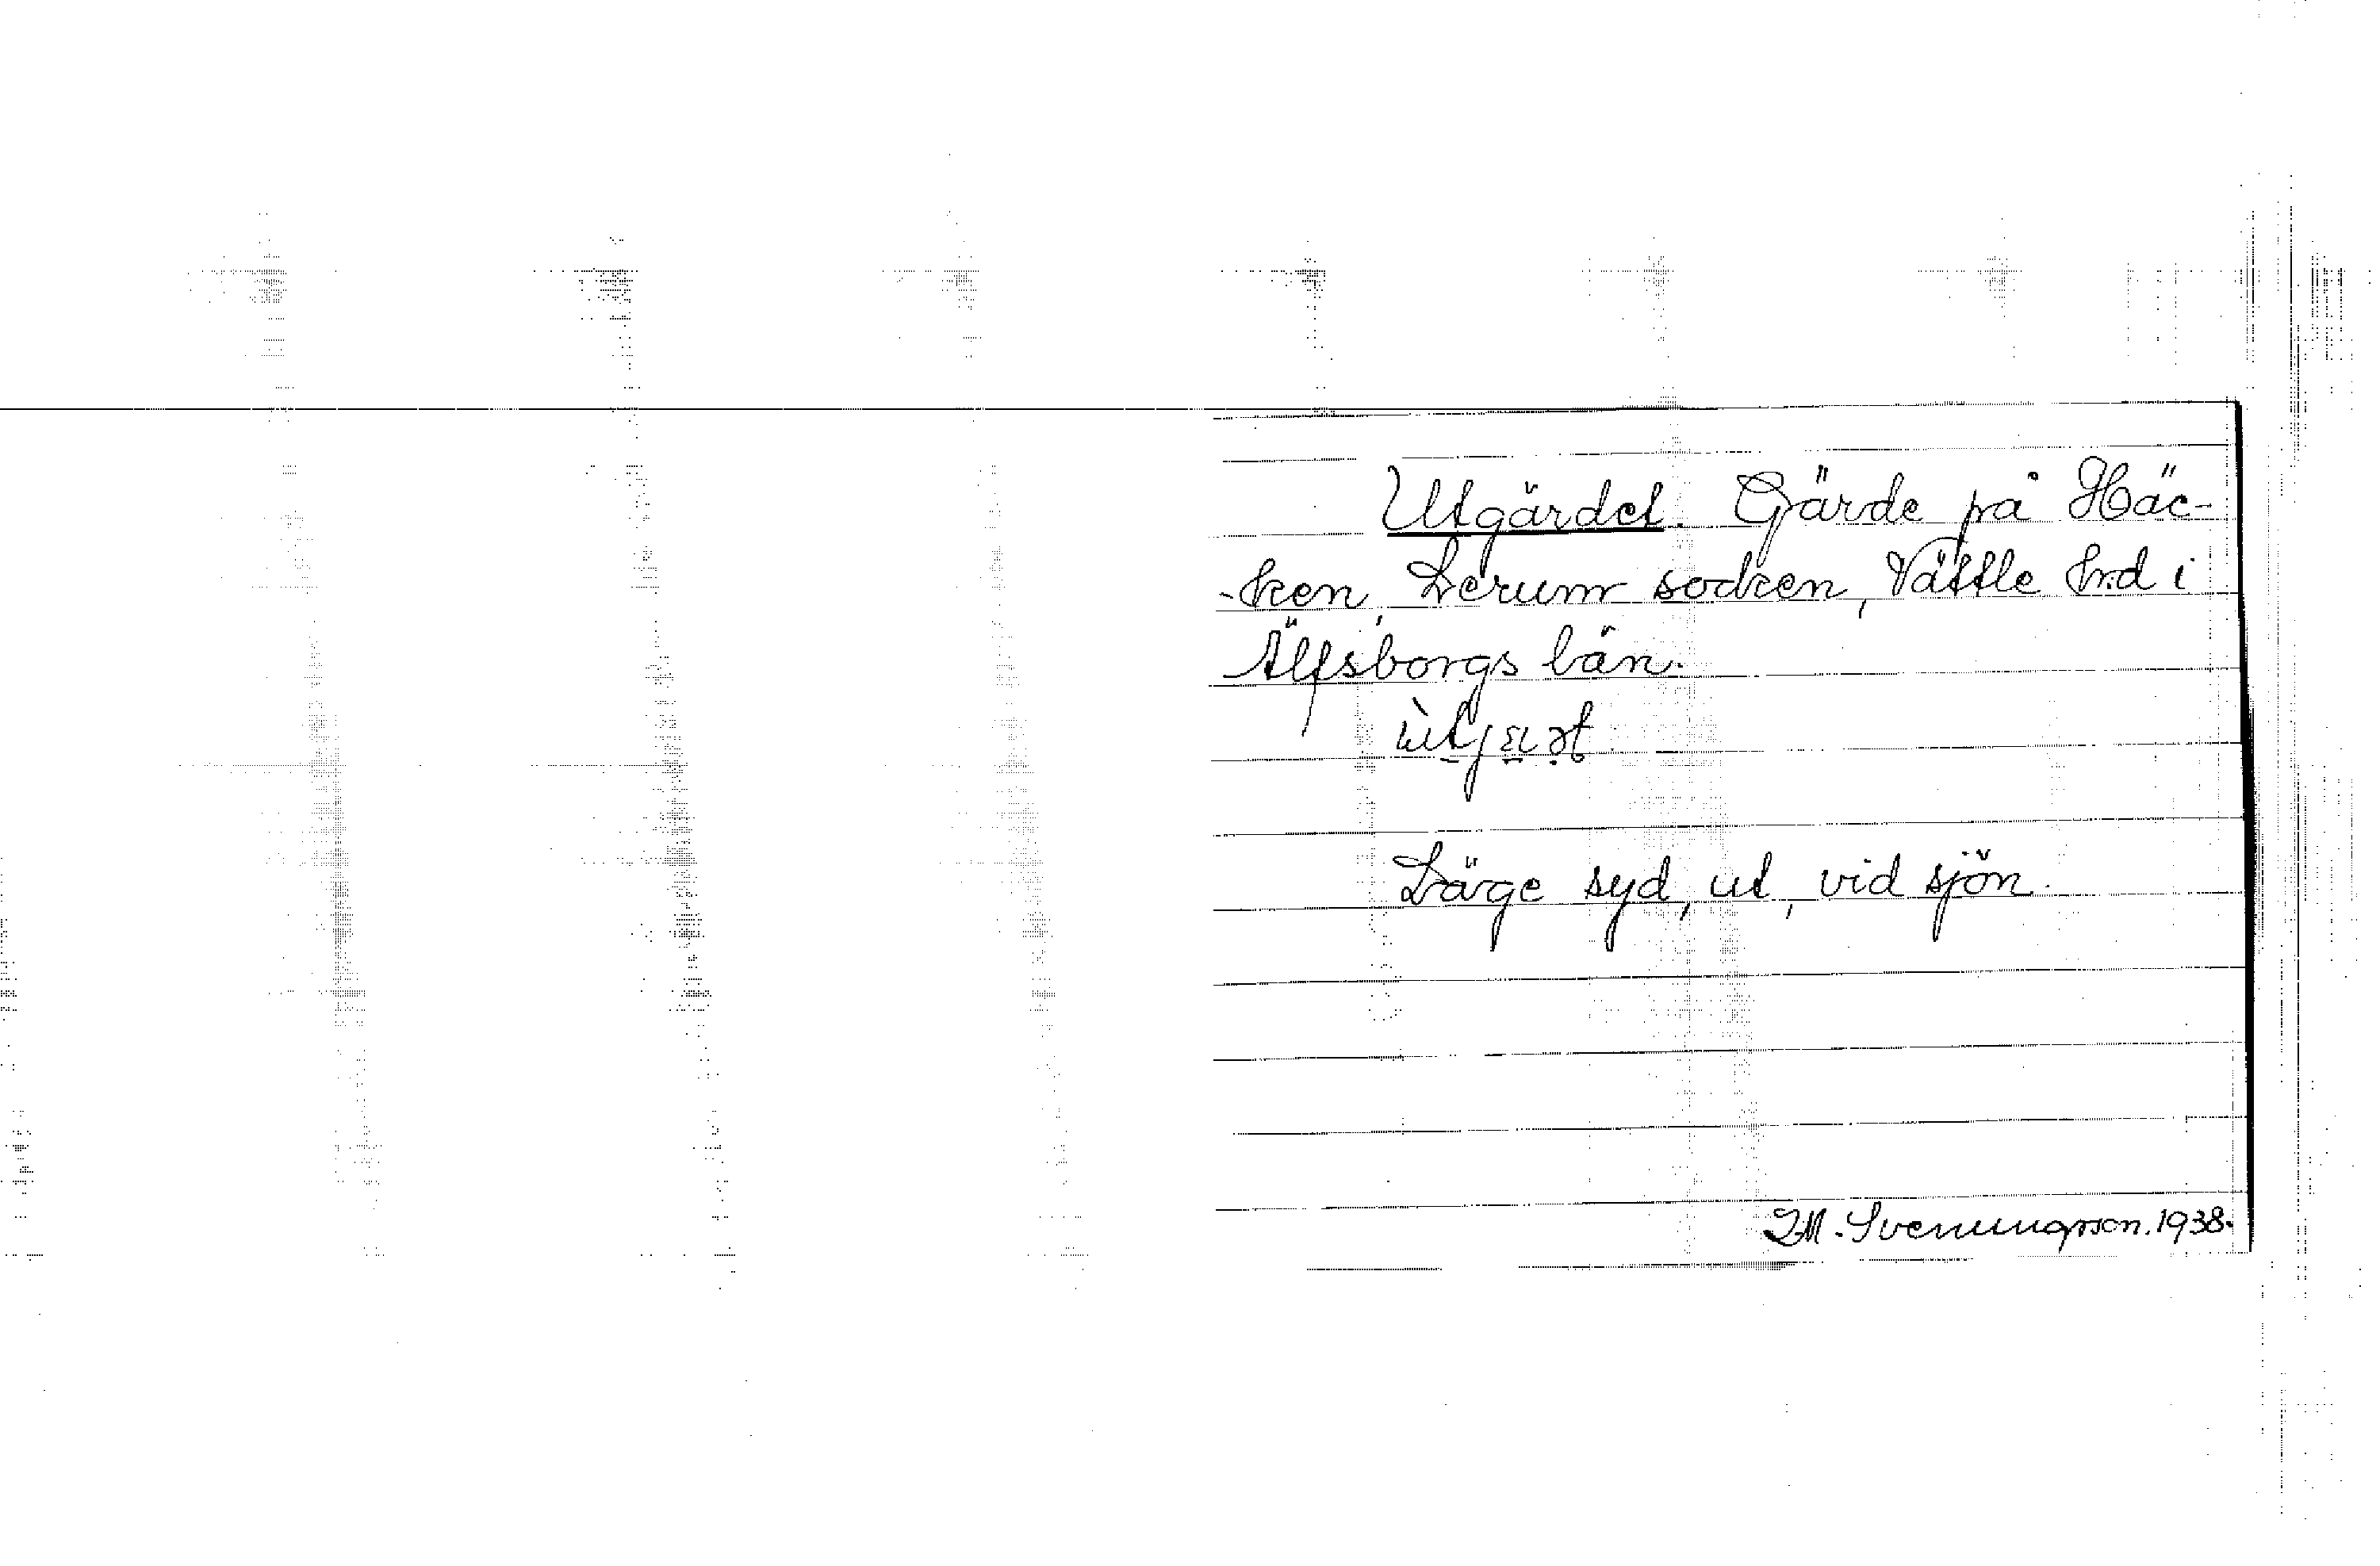 Utgärdet. Gärde på Häc-
-ken, Lerum socken, Vättle hrd i
Älfsborgs län.
Läge syd, ut, vid sjön.
IM. Svenungsson. 1938.